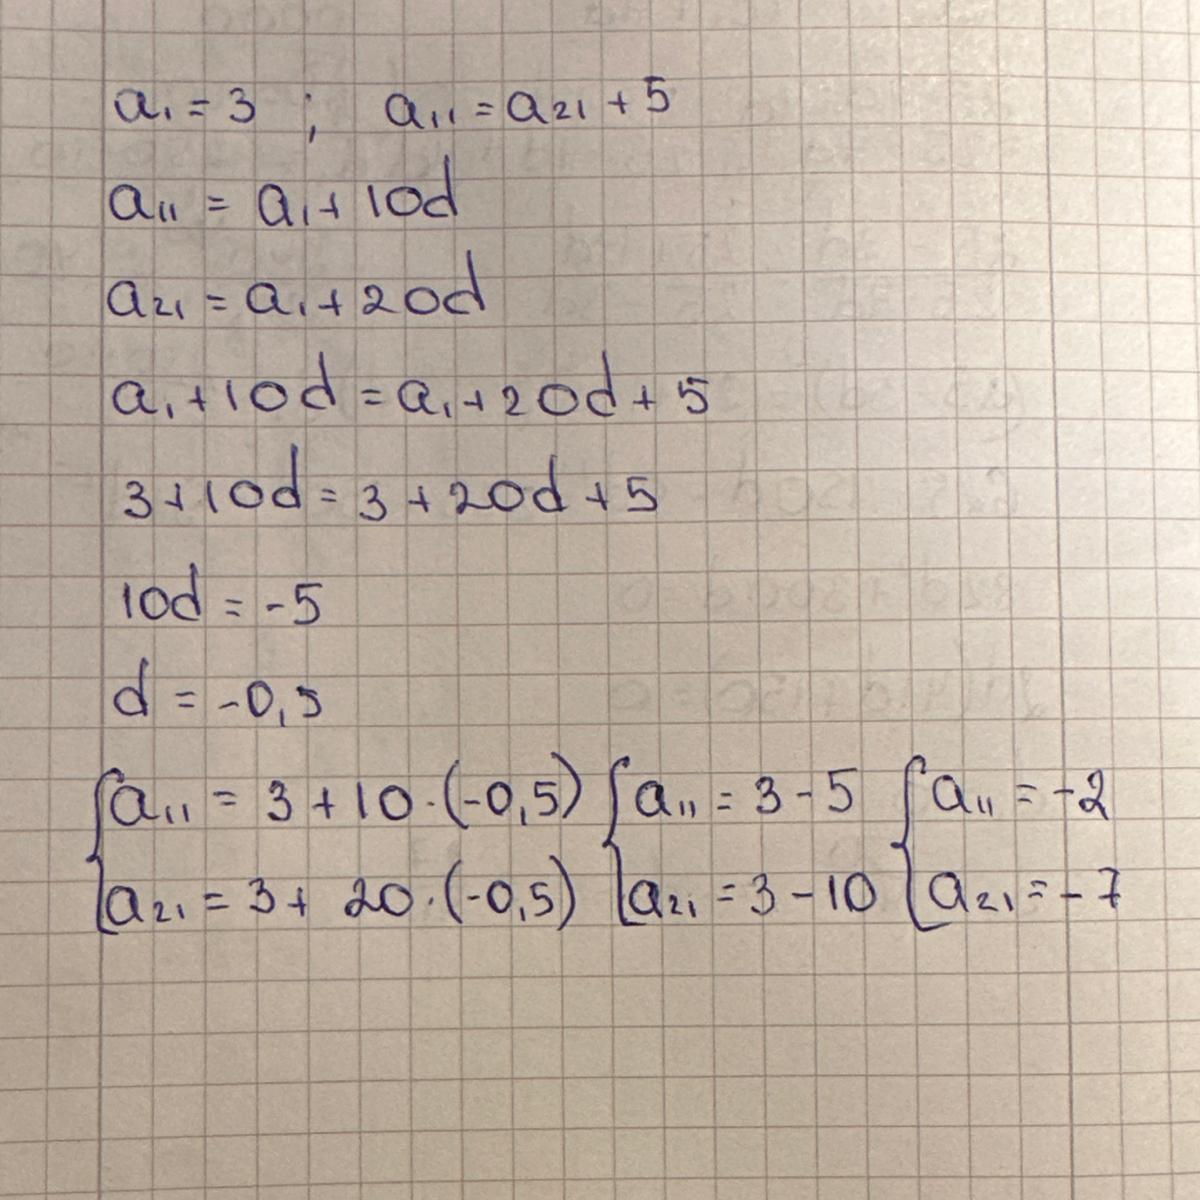 a₁ = 3 ; a₁₁ = a₂₁ + 5
a₁₁ = a₁ + 10d
a₂₁ = a₁ + 20d
a₁ + 10d = a₁ + 20d + 5
3 + 10d = 3 + 20d + 5
10d = -5
d = -0,5
{ a₁₁ = 3 + 10·(-0,5) { a₁₁ = 3 - 5 { a₁₁ = -2
a₂₁ = 3 + 20·(-0,5) a₂₁ = 3 - 10 a₂₁ = -7